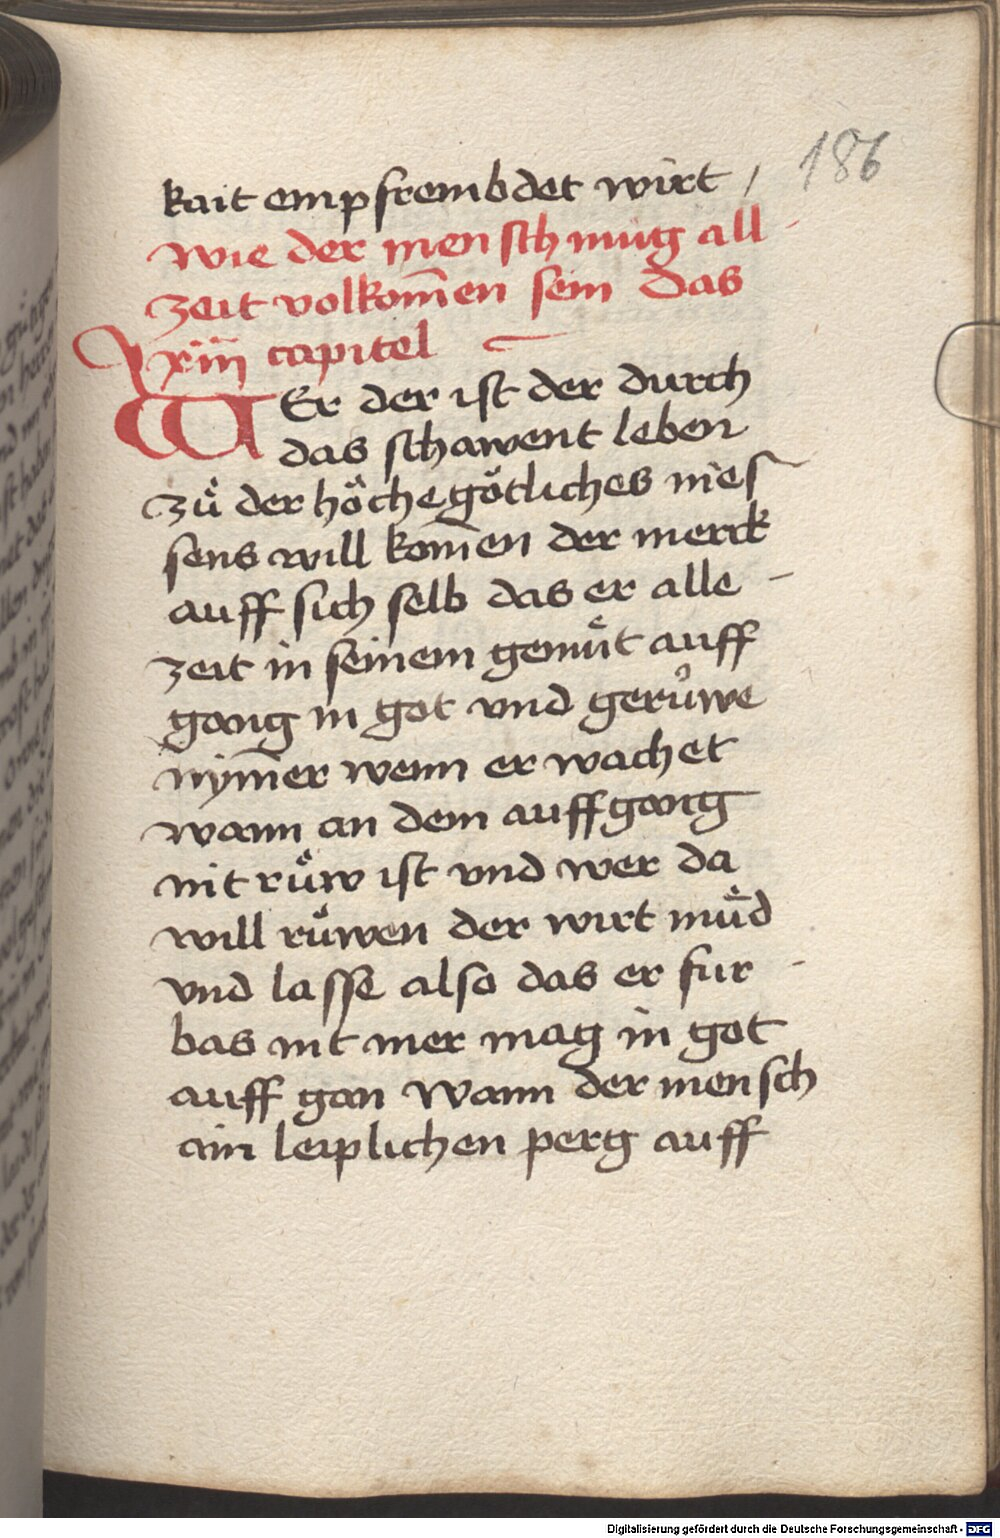 186
kait empfrembdet wirt /
wie der mensch mug all-
zeit volkom̄en sein das
xxiiij capitel
WEr der ist der durch
das schawent leben
zuͤ der hoͤche goͤtliches nies
sens will kom̄en der merck
auff sich selb das er alle-
zeit in seinem gemuͤt auff
gang in got vnd geruͦwe
nym̄er wenn er wachet
wann an dem auffgang
nit ruͤw ist vnd wer da
will ruͤwen der wirt muͤd
vnd lasse also das er fur-
bas nit mer mag in got
auff gan Wann der mensch
ain leiplichen perg auff
Digitalisierung gefördert durch die Deutsche Forschungsgemeinschaft - DFG